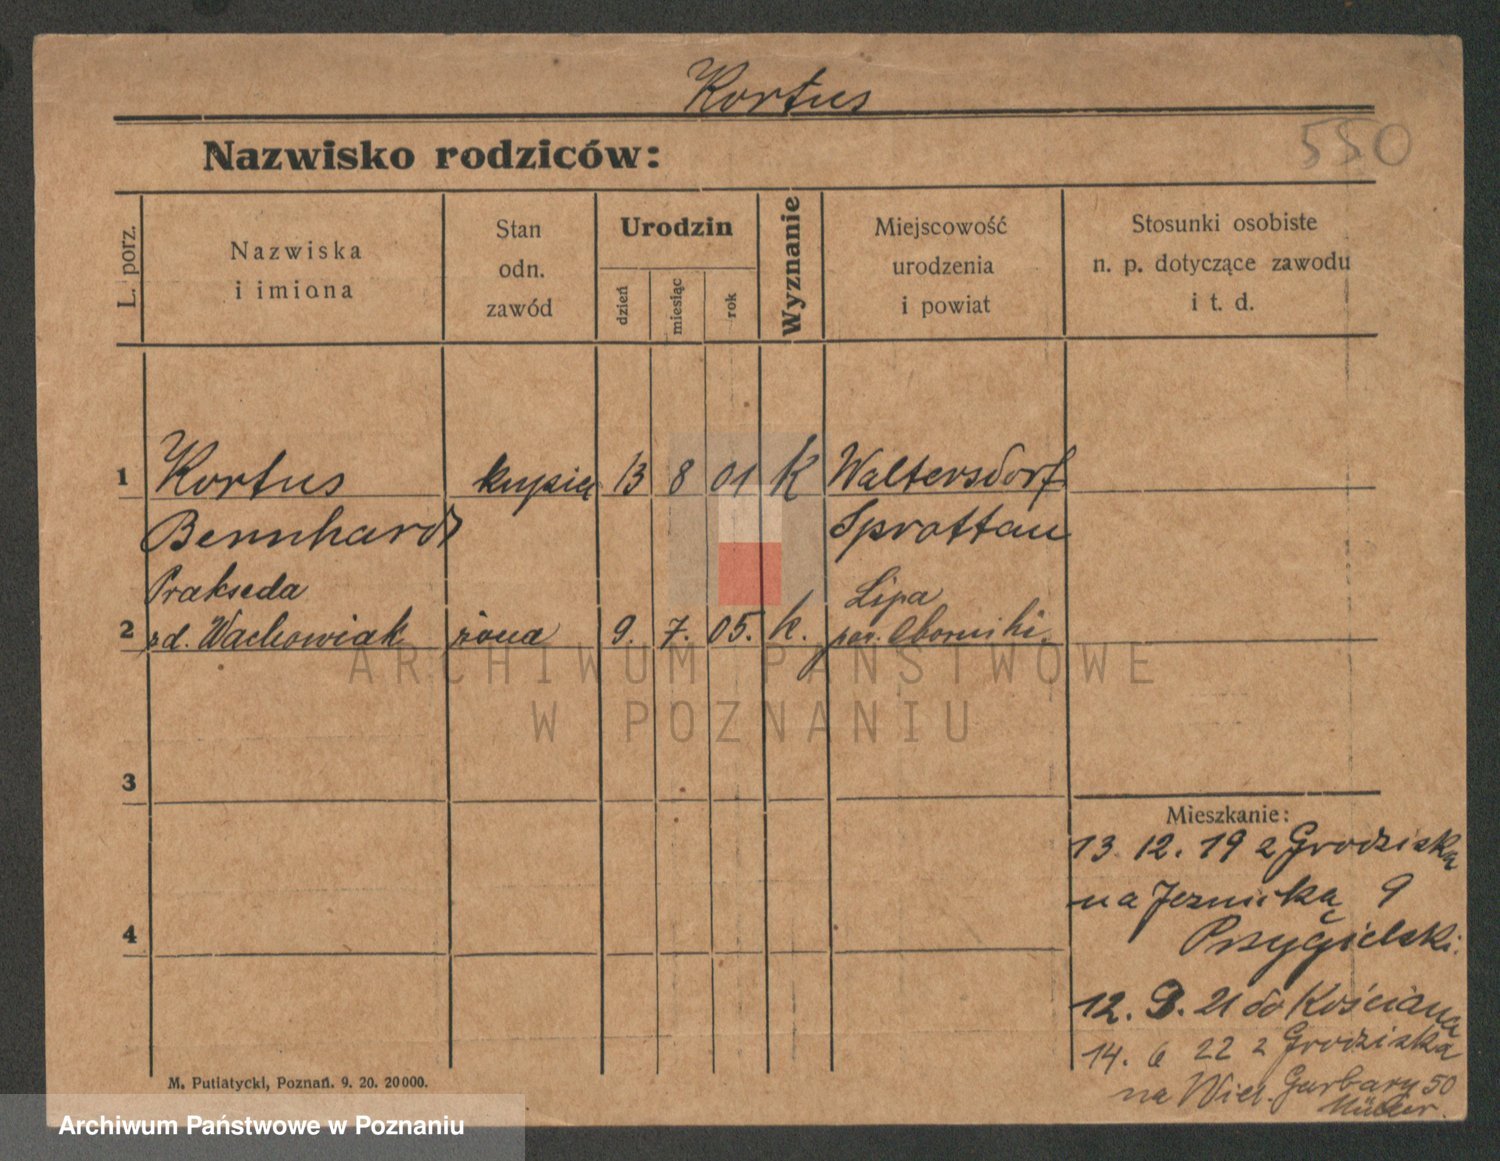 Kortus
550
Nazwisko rodziców:
L. porz.
Nazwiska
i imiona
Stan
odn.
zawód
Urodzin
dzień
miesiąc
rok
Wyznanie
Miejscowość
urodzenia
i powiat
Stosunki osobiste
n. p. dotyczące zawodu
i t. d.
1 Kortus kupiec 13 8 01 K Waltersdorf
Bernhardt Sprottau
Prakseda Lipa
2 zd. Wachowiak żona 9. 7. 05. k. pow. Oborniki.
ARCHIWUM PAŃSTWOWE
W POZNANIU
3
4
Mieszkanie:
13. 12. 19 z Grodziska
na Jeznicką 9
Przygielski.
12. 9. 21 do Kościana
14. 6 22 z Grodziska
na Wiel. Garbary 50
Müller.
M. Putiatycki, Poznań. 9. 20. 20000.
Archiwum Państwowe w Poznaniu